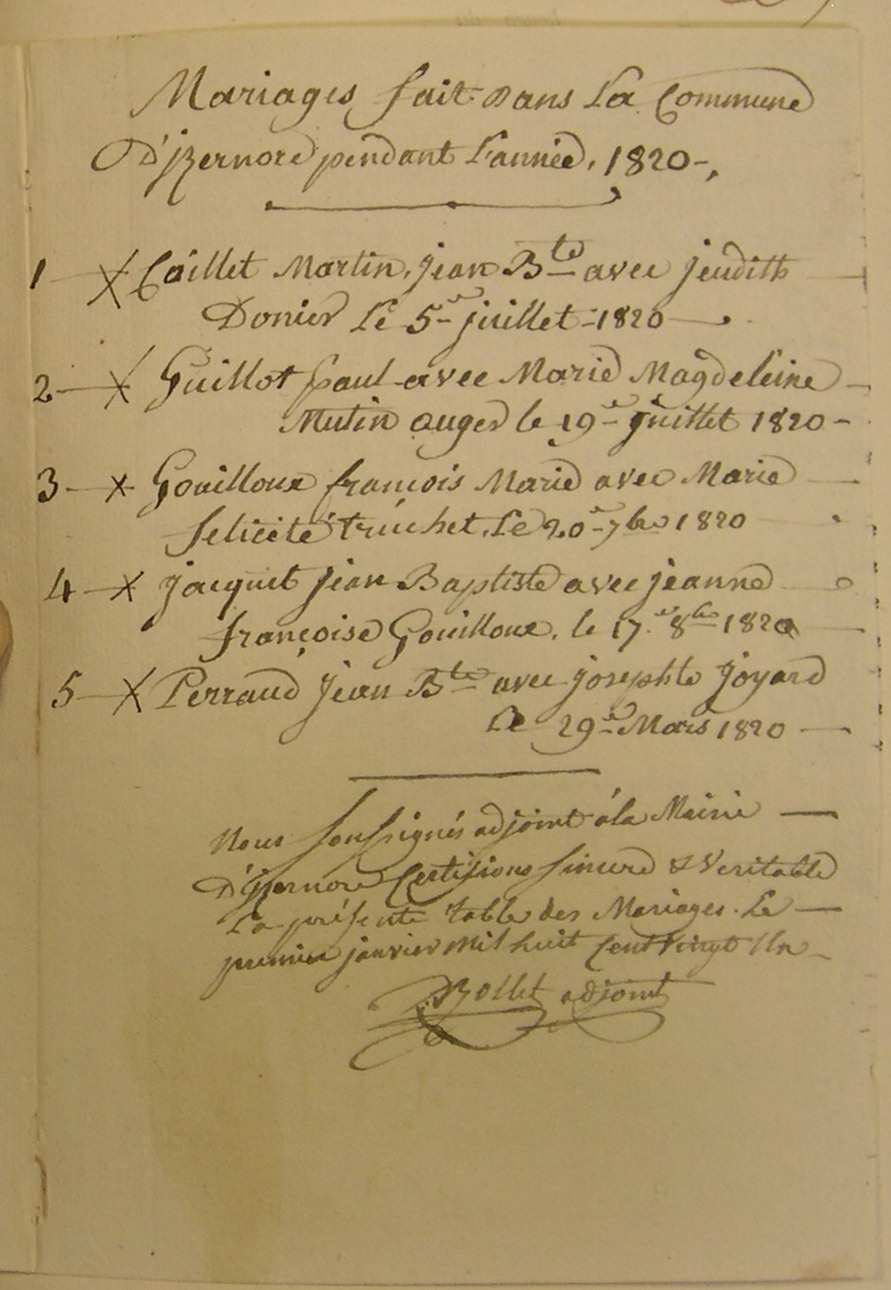 Mariages fait dans La Commune
D'izernore pendant L'année, 1820
1 Caillet Martin, jean Bte avec jeudith
Donier Le 5e juillet 1820
2 Guillot paul avec Marie Magdeleine
Mutin auger le 19e juillet 1820
3 Gouilloux françois Marie avec Marie
felicité truchet, Le 20e 7bre 1820
4 jacquet jean Baptiste avec jeanne
françoise Gouilloux, le 17e 8bre 1820
5 Perraud jean Bte avec josephte joyard
Le 29e Mars 1820
Nous Soussignés adjoint à la Mairie
D'izernore Certifions Sincere & Veritable
La présente table des Mariages. Le
premier janvier Mil huit Cent Vingt Un
Bollet adjoint